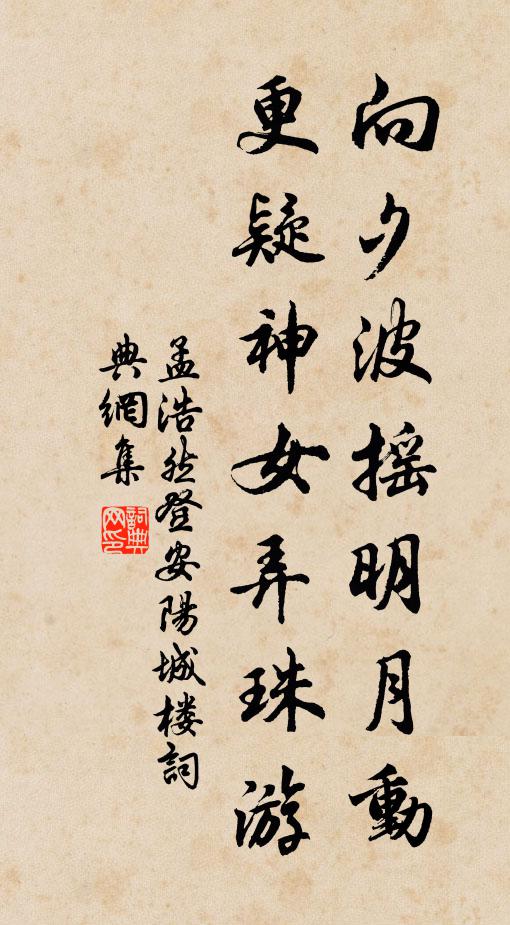 向夕波摇明月動
更疑神女弄珠游
孟浩然登安陽城楼詞
典網集
詞典網印